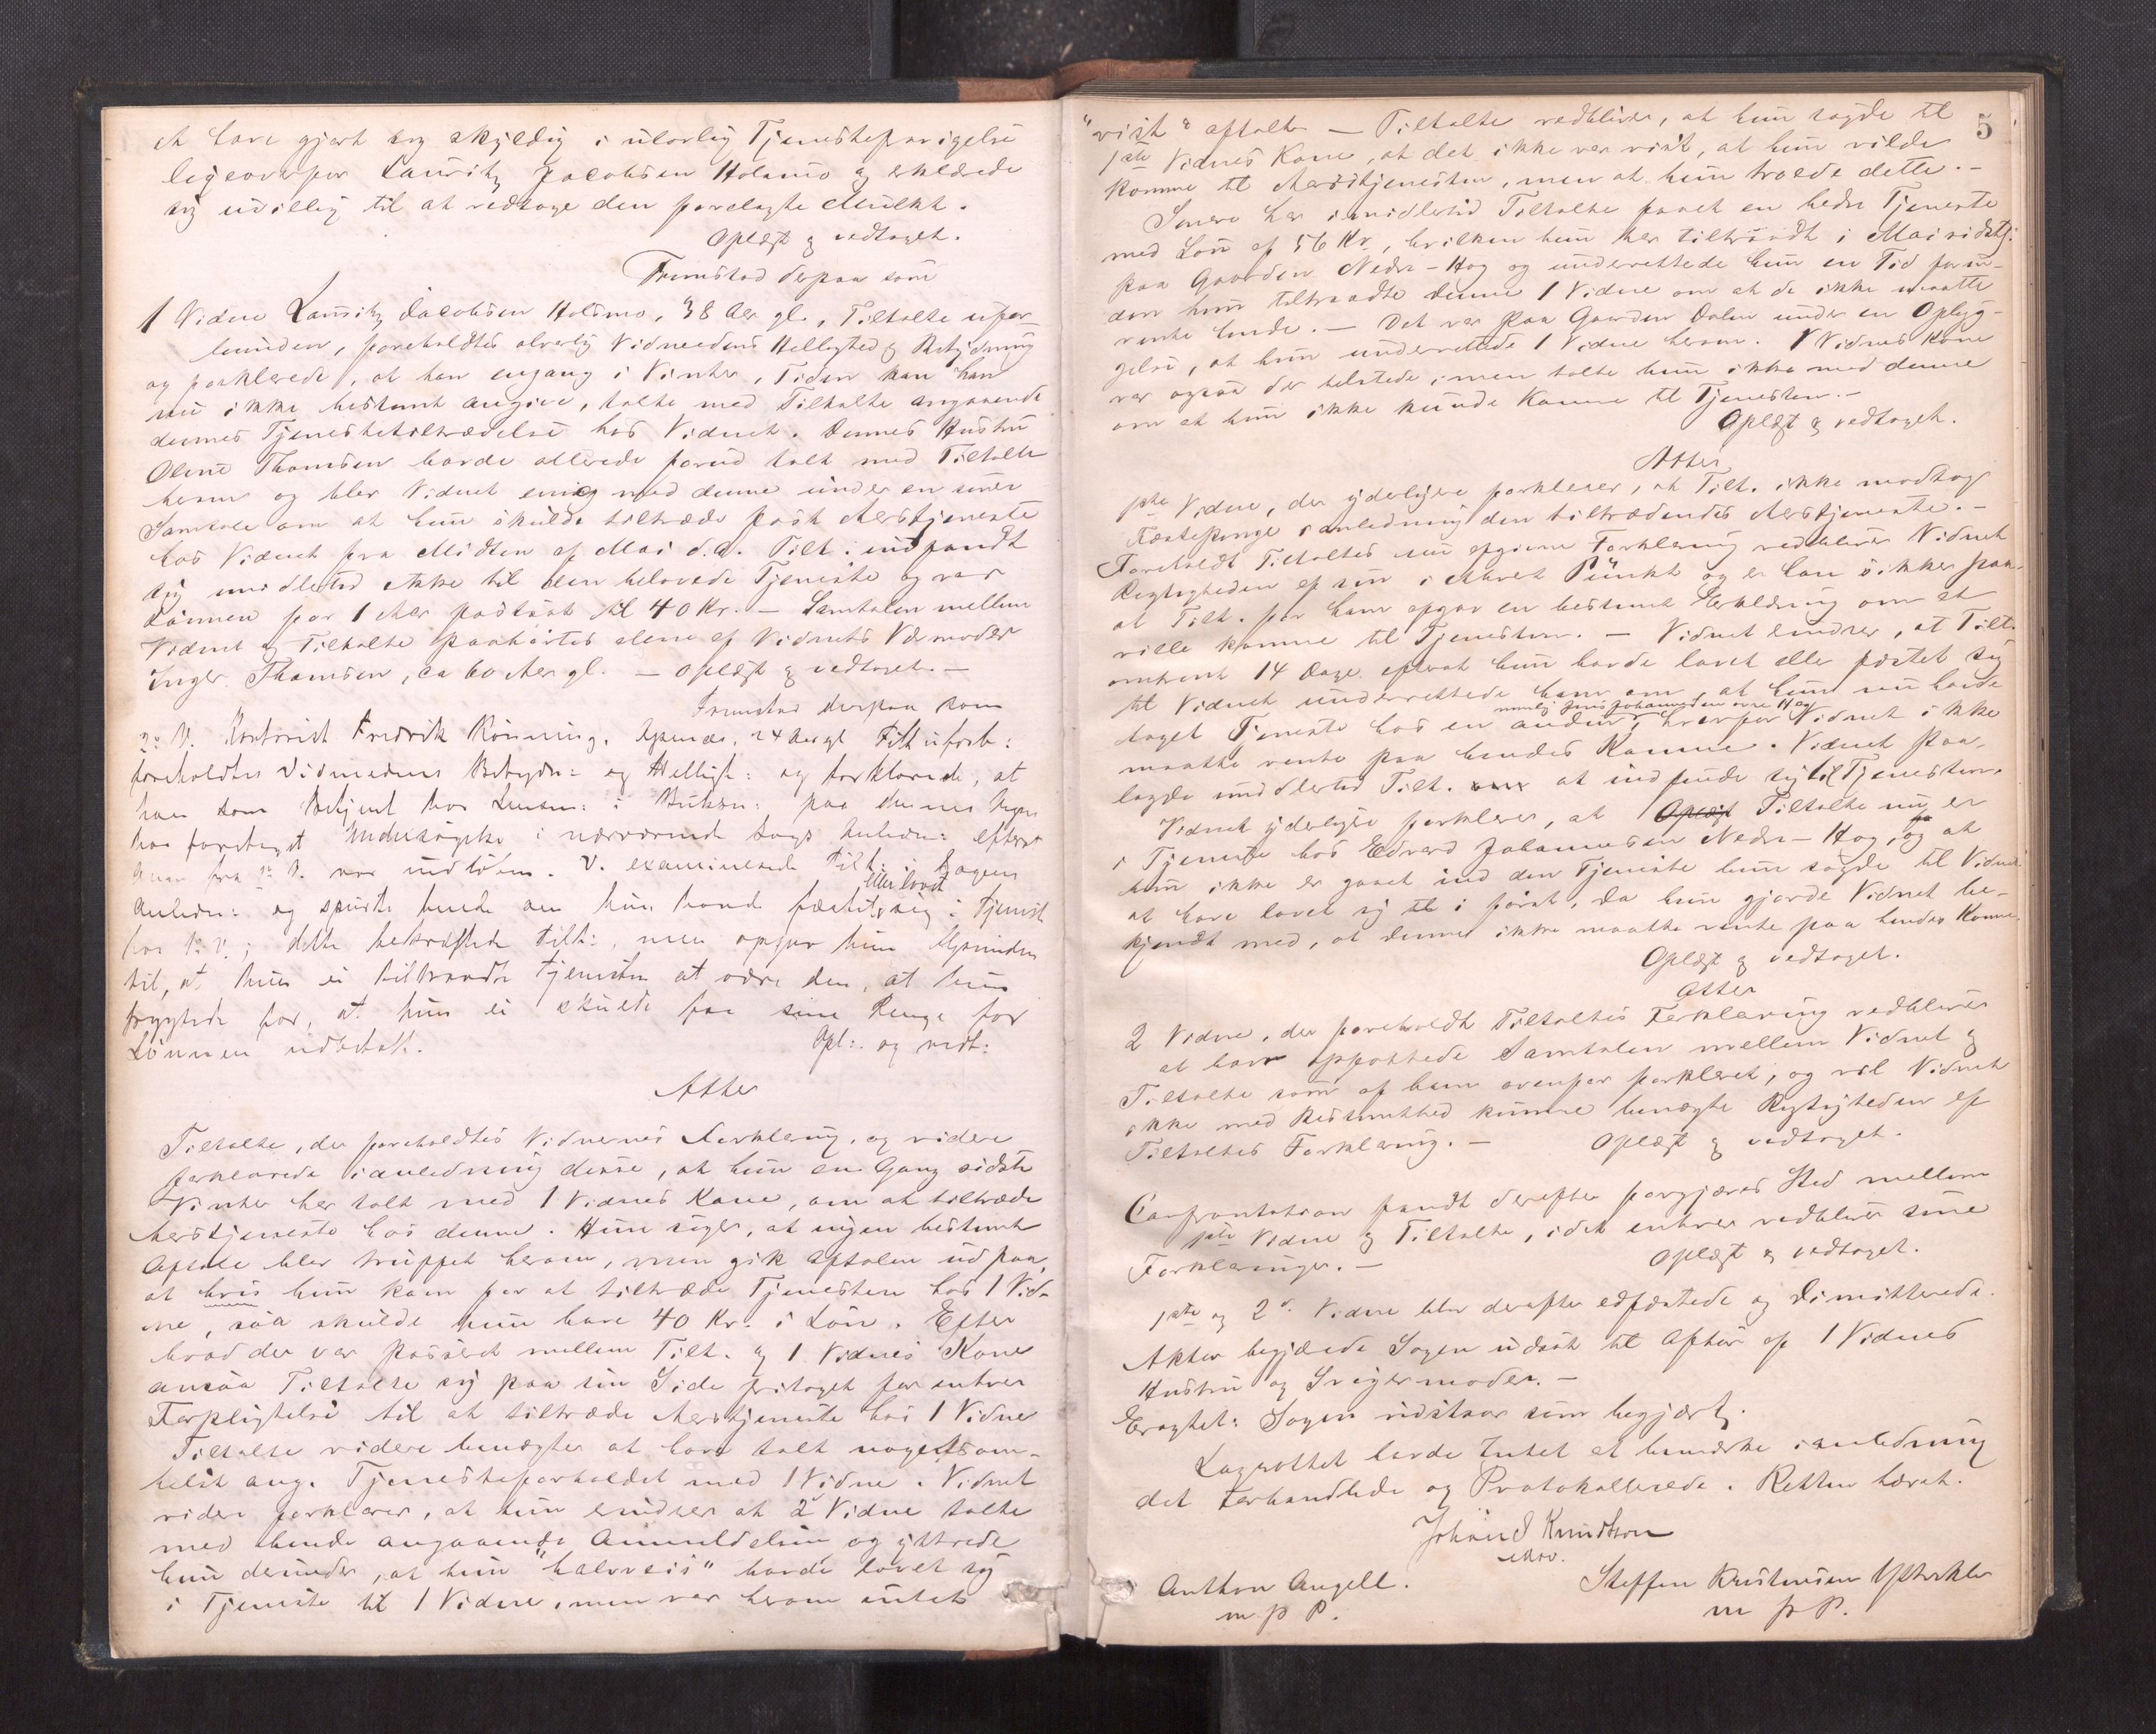 at have gjort sig skyldig i ulovlig Tjenestefravigelse
ligeoverfor Lauritz Jacobsen Holsmo og erklærede
sig uvillig til at vedtage den forelagte Mulkt.
Oplæst & vedtaget.
Fremstod derpaa som
1 Vidne Lauritz Jacobsen Holsmo, 38 Aar gl., Tiltalte ufor-
bunden, foreholdtes alvorlig Vidneedens Hellighed & Betydning
og forklarede, at han engang i Vinter, Tiden kan han
nu ikke bestemt angive, talte med Tiltalte angaaende
dennes Tjenestetiltrædelse hos Vidnet. Dennes Hustru
Oline Thomsen havde allerede forud talt med Tiltalte
herom og blev Vidnet enig med denne under en
Samtale om at hun skulde tiltræde fast Aarstjeneste
hos Vidnet fra Midten af Mai d.a. Tilt. indfandt
sig imidlertid ikke til den belovede Tjeneste og var
Lønnen for 1 Aar fastsat til 40 Kr. – Samtalen mellem
Vidnet og Tiltalte paahørtes alene af Vidnets Værmoder
Inger Thomsen, ca 60 Aar gl. – Oplæst & vedtaget. –
Fremstod derpaa som
2. V. Kontorist Fredrik Rønning, 24 Aar gl Tilt uforb:
foreholdtes Vidneedens Betydn: og Hellighe: og forklarede, at
han som Betjent hos Lensm: i Buksn: paa dennes Vegne
har foretaget Undersøgelse i nærværende Sags Anledn: efterat
fra 1. V. var indløben. V. examinerede Tilt: i Sagens
eller lovet
Anledn: og spurte hende om hun havde fæstet sig i Tjeneste
hos 1. V.; dette bekræftede Tilt:, men opgav hun Grunden
til, at hun ei tiltraadte Tjenesten at være den, at hun
frygtede for, at hun ei skulde faa sine Penge for
Lønnen udbetalt. Opl: og vedt:
Atter
Tiltalte, der foreholdtes Vidnernes Forklaring, og videre
forklarede i anledning disse, at hun en Gang sidste
Vinter har talt med 1 Vidnes Kone, om at tiltræde
Aarstjeneste hos denne. Hun siger, at ingen bestemt
Aftale blev truffet herom, men gik Aftalen ud paa,
at hvis hun kom for at tiltræde Tjenesten hos 1 Vid-
ne, saa skulde hun have 40 Kr. i Løn. Efter
hvad der var passeret mellem Tilt. og 1 Vidnes Kone
ansaa Tiltalte sig paa sin Side fritaget for enhver
Forpligtelse til at tiltræde Aarstjeneste hos 1 Vidne
Tiltalte videre benægter at have talt nogetsom-
helst ang. Tjenesteforholdet med 1 Vidne. Vidnet
videre forklarer, at hun erindrer at 2 Vidne talte
med hende angaaende Anmeldelsen og yttrede
hun derunder, at hun "halvveis" havde lovet sig
i Tjeneste til 1 Vidne, men var herom intet
5
"vist" aftalt – Tiltalte vedbliver, at hun sagde til
1ste Vidnes Kone, at det ikke var vist, at hun vilde
komme til Aarstjenesten, men at hun troede dette. –
Senere har imidlertid Tiltalte faaet en bedre Tjeneste
med Løn af 56 Kr., hvilken hun har tiltraadt i Mai sidstl:
paa Gaarden Nedre-Hog og underrettede hun en Tid forin-
den hun tiltraadte denne 1 Vidne om at de ikke maatte
vente hende. – Det var paa Gaarden Dalen under en Oplyg-
gelse, at hun underrettede 1 Vidne herom. 1 Vidnes Kone
var ogsaa der tilstede, men talte hun ikke med denne
om at hun ikke kunde komme til Tjenesten. –
Oplæst & vedtaget.
Atter
1ste Vidne, der yderligere forklarer, at Tilt. ikke modtog
Fæstepenge i anledning den tiltrædendes Aarstjeneste. –
Foreholdt Tiltaltes nu afgivne Forklaring vedbliver Vidnet
Rigtigheden af sin i Punkt og er han sikker paa
at Tilt. for ham afgav en bestemt Erklæring om at
ville komme til Tjenesten. – Vidnet erindrer, at Tilt.
omtrent 14 Dage efterat hun havde lovet eller fæstet sig
til Vidnet underrettede ham om, at hun nu havde
nemlig Jens Johannesen Hog
taget Tjeneste hos en anden, hvorfor Vidnet ikke
maatte vente paa hendes Komme. Vidnet paa-
lagde imidlertid Tilt. at indfinde sig til Tjenesten.
Vidnet yderligere forklarer, at Oplæst Tiltalte nu er
i Tjeneste hos Edvard Johannesen Nedre-Hog, og at
hun ikke er gaaet ind den Tjeneste hun sagde til Vidnet
at have lovet sig til i først, da hun gjorde Vidnet be-
kjendt med, at denne ikke maatte vente paa hendes Komme.
Oplæst & vedtaget.
Atter
2 Vidne, der foreholdt Tiltaltes Forklaring vedbliver
at have opfattede Samtalen mellem Vidnet &
Tiltalte som af ham ovenfor forklaret, og vil Vidnet
ikke med Bestemthed kunne benægte Rigtigheden af
Tiltaltes Forklaring. – Oplæst & vedtaget.
Confrontation fandt derefter forgjæves Sted mellem
1ste Vidne & Tiltalte, idet enhver vedbliver sine
Forklaringer. – Oplæst & vedtaget.
1ste og 2det Vidne blev derefter edfæstede og dimitterede.
Aktor begjærede Sagen udsat til Afhør af 1 Vidnes
Hustru og Svigermoder. –
Eragtet: Sagen udstaar som begjært.
Lagrettet havde Intet at bemærke i anledning
det Forhandlede og Protokollerede. Retten hævet.
Johan S Knudtson
const.
Anthon Angell. Steffen Kristensen
m p P. m p P.